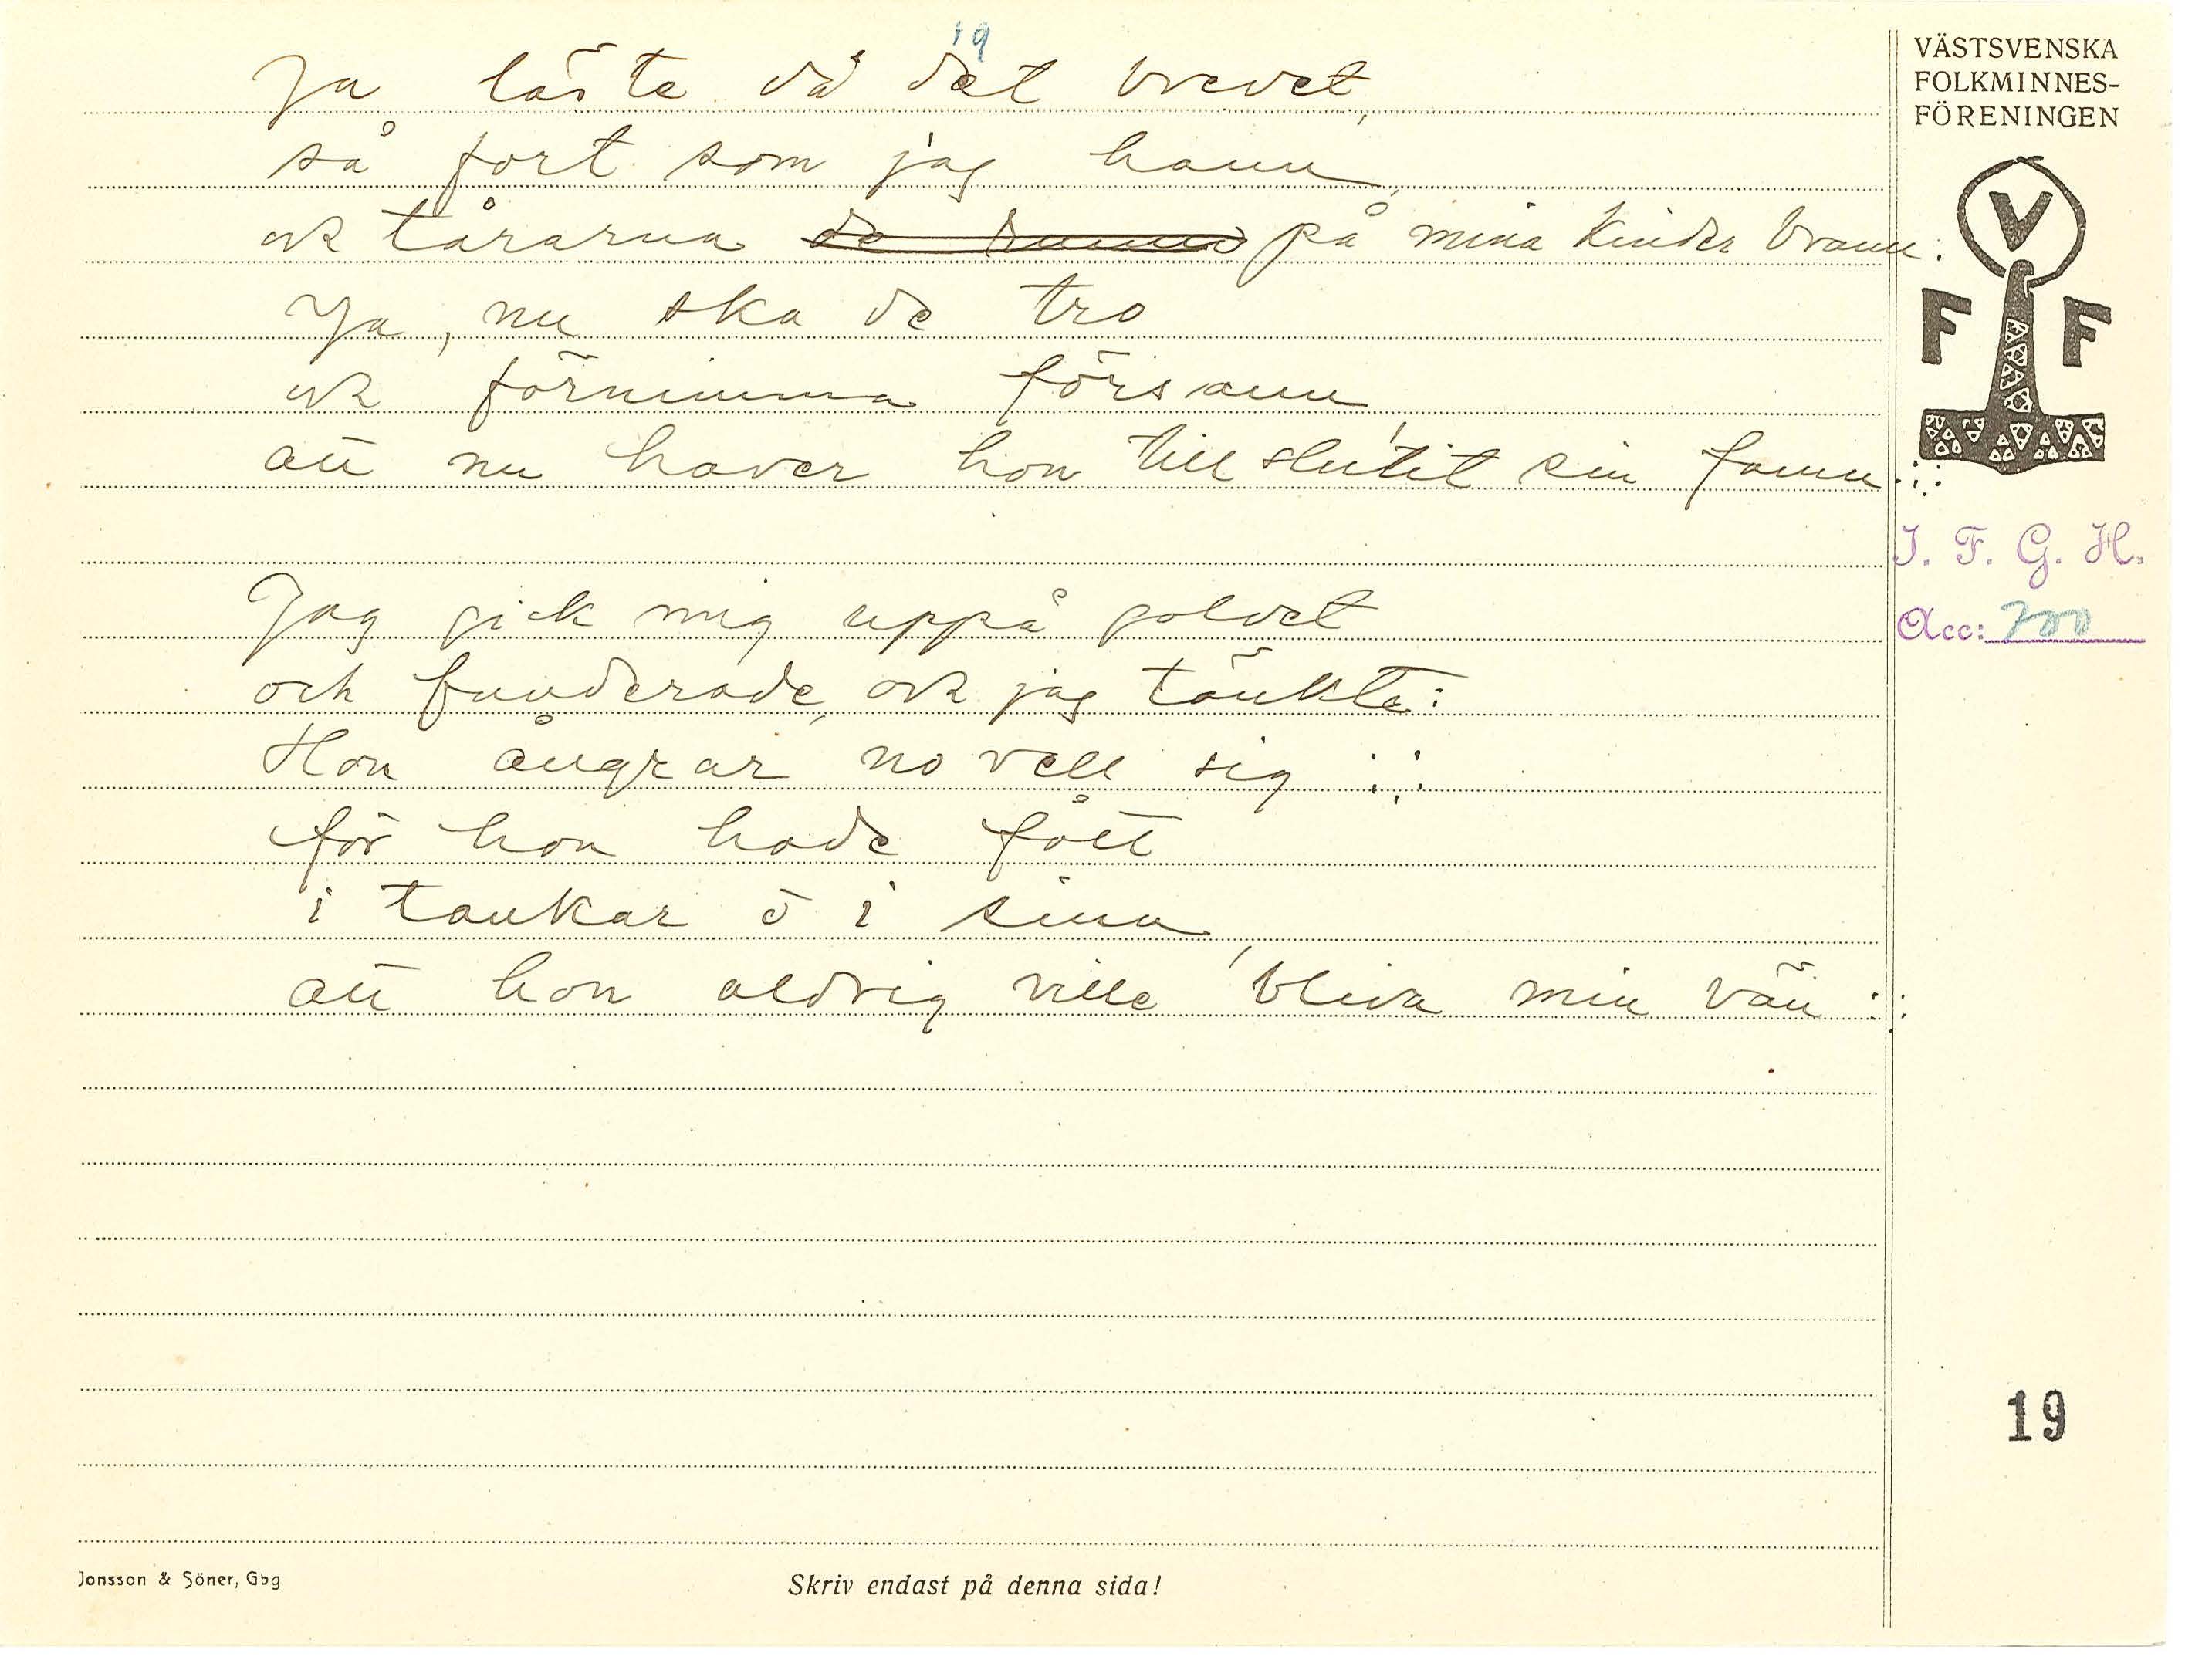 19
Ja läste då det brevet,
så fort som jag hann,
ock tårarna de runno på mina kinder brann.
Ja, nu ska de tro
ock förnimma försann,
att nu haver hon till slutit sin famn :;:
Jag gick mig uppå golvet
och funderade, ock jag tänkte:
Hon ångrar no väll sig :;:
för hon hade fått
i tankar å i sinn,
att hon aldrig ville bliva min vän :;:
VÄSTSVENSKA
FOLKMINNES-
FÖRENINGEN
V
F F
I. F. G. H.
Acc: 700
19
Jonsson & Söner, Gbg
Skriv endast på denna sida!